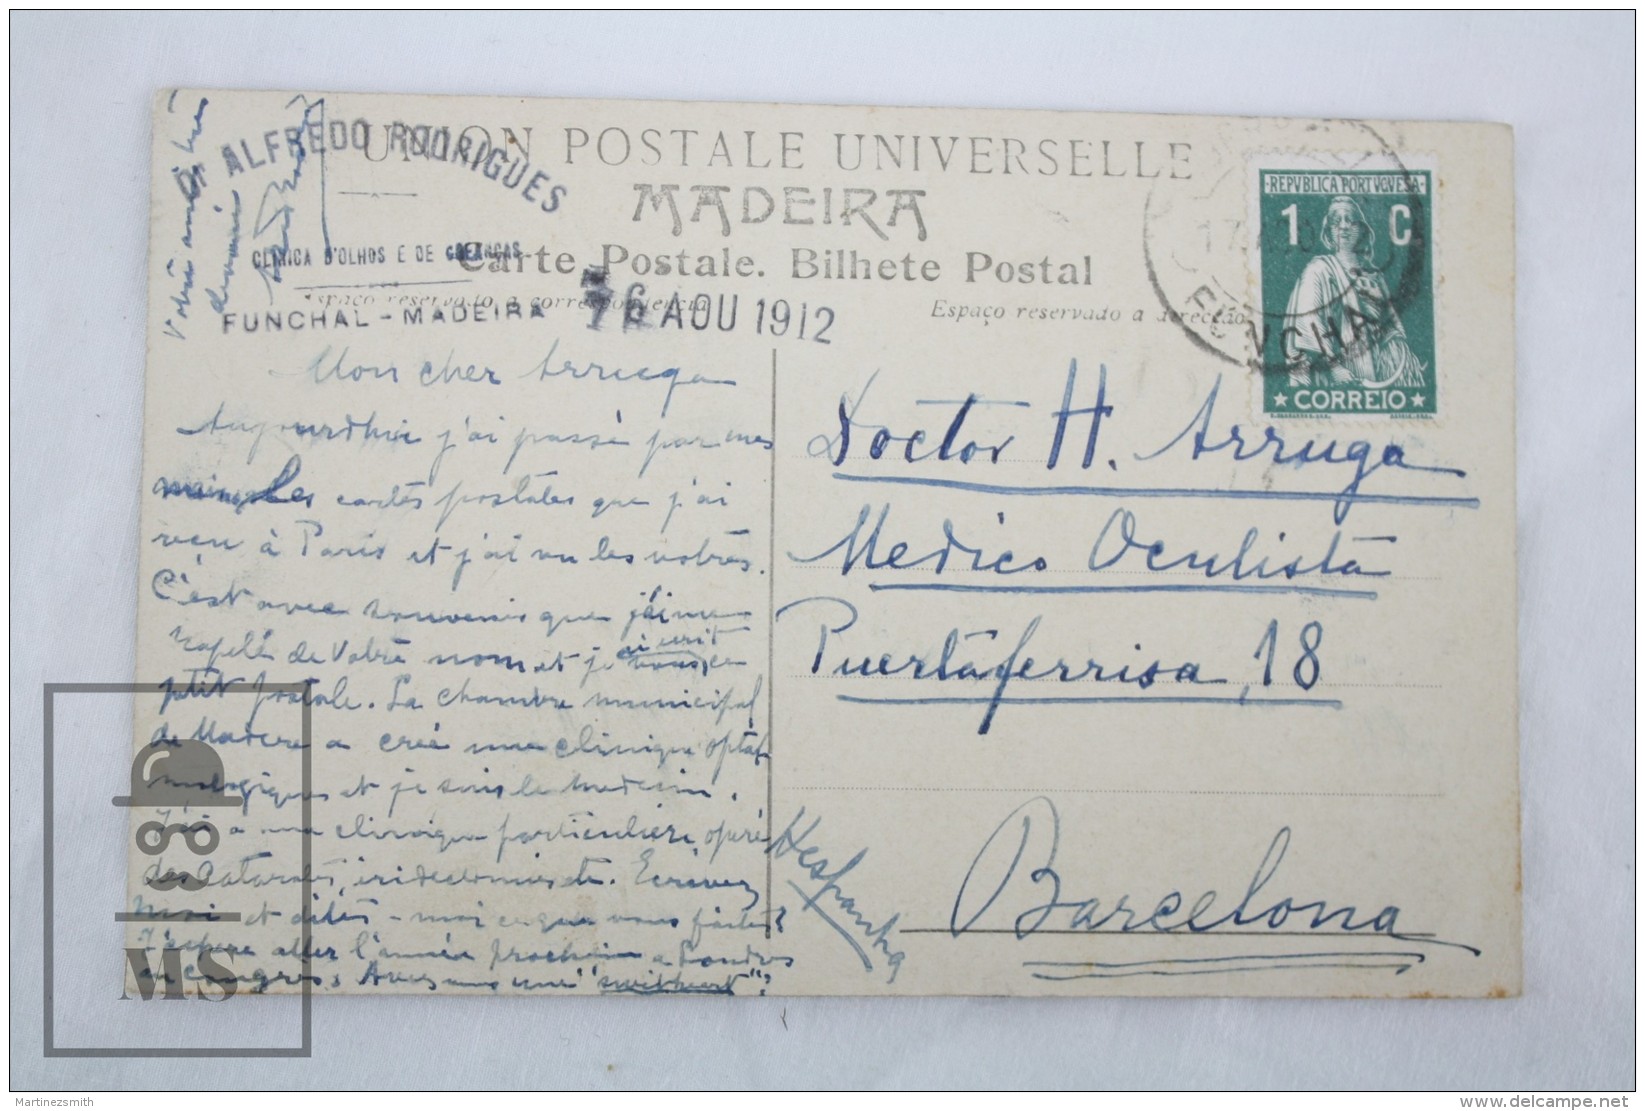 UNION POSTALE UNIVERSELLE
MADEIRA
Carte Postale. Bilhete Postal
Espaço reservado a correspondencia
Espaço reservado a direcção
Dr ALFREDO RODRIGUES
CLINICA D'OLHOS E DE CREANÇAS
FUNCHAL - MADEIRA
16 AOU 1912
REPVBLICA PORTVGVESA
1 C.
CORREIO
FVNCHAL
Votre ami
Mon cher Arruga
Aujourdhui j'ai passé par mes
mains les cartes postales que j'ai
reçu à Paris et j'ai vu les votres.
C'est avec souvenir que
rapelé de Votre nom et je vous ai ecrit ce
ptit postale. La chambre municipal
de Madere a creé une clinique optal-
mologique et je suis le medecin.
J'ai une clinique particuliere, operé
des Cataractes, iridectomies etc. Ecrivez
moi et dites-moi ce que vous faites?
J'espere aller l'année prochain a Londres
au Congres. Avez vous une "switheart"?
Doctor H. Arruga
Medico Oculista
Puertaferrisa, 18
Barcelona
Hespanha
MS
Martinezsmith
www.delcampe.net